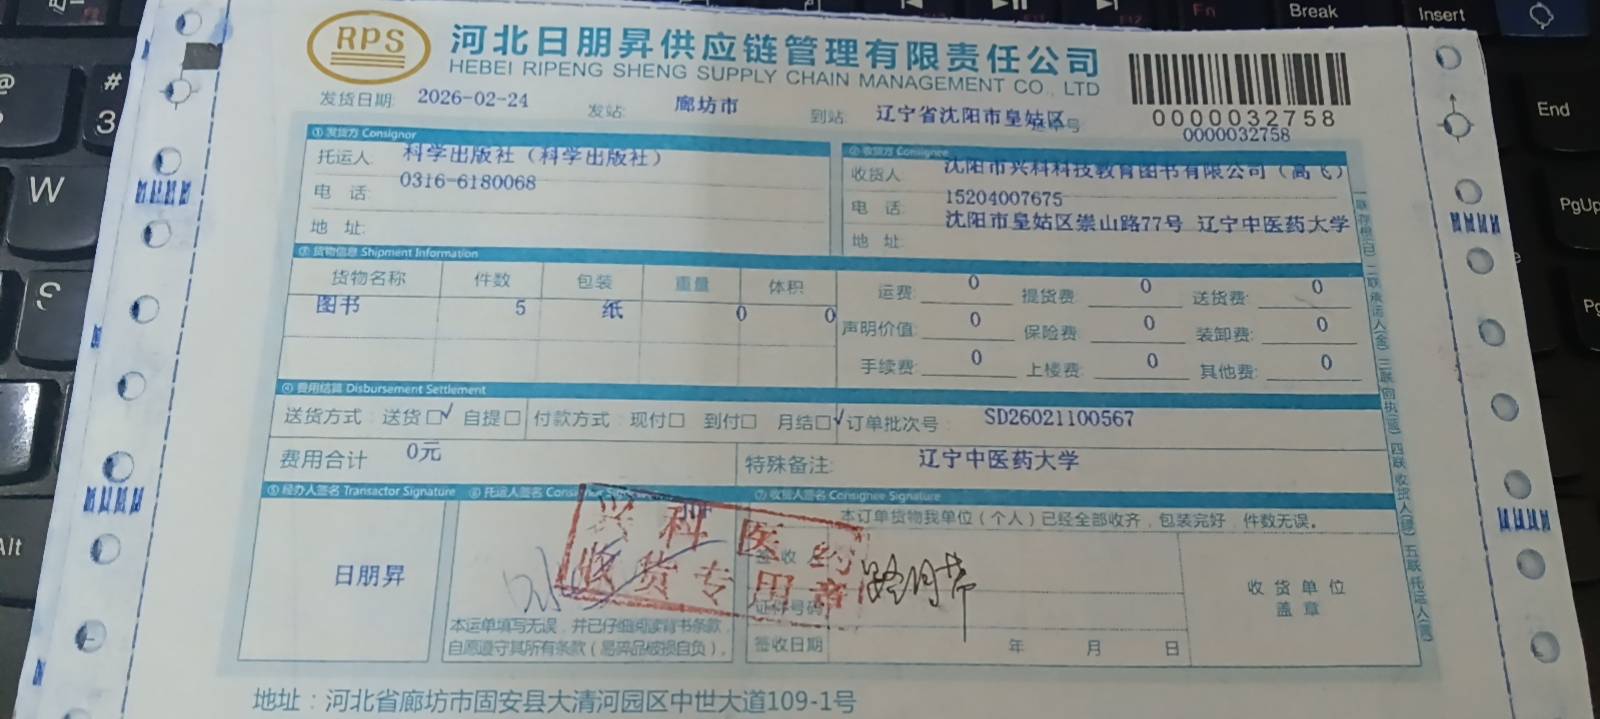 RPS
河北日朋昇供应链管理有限责任公司
HEBEI RIPENG SHENG SUPPLY CHAIN MANAGEMENT CO., LTD
0000032758
0000032758
发货日期: 2026-02-24 发站: 廊坊市 到站: 辽宁省沈阳市皇姑区
①发货方 Consignor
托运人 科学出版社（科学出版社）
电 话: 0316-6180068
地 址:
②收货方 Consignee
收货人 沈阳市兴科科技教育图书有限公司（高飞）
电 话: 15204007675
地 址: 沈阳市皇姑区崇山路77号 辽宁中医药大学
③货物信息 Shipment Information
货物名称 件数 包装 重量 体积
图书 5 纸 0 0
运费: 0 提货费: 0 送货费: 0
声明价值: 0 保险费: 0 装卸费: 0
手续费: 0 上楼费: 0 其他费: 0
④费用结算 Disbursement Settlement
送货方式: 送货□√ 自提□ 付款方式: 现付□ 到付□ 月结□√ 订单批次号: SD26021100567
费用合计 0元 特殊备注: 辽宁中医药大学
⑤经办人签名 Transactor Signature
日朋昇
⑥托运人签名
本运单填写无误，并已仔细阅读背书条款，
自愿遵守其所有条款（易碎品破损自负）。
⑦收货人签名 Consignee Signature
本订单货物我单位（个人）已经全部收齐，包装完好，件数无误。
签收
证件号码
签收日期 年 月 日
收货单位
盖章
兴科医药
收货专用章
地址：河北省廊坊市固安县大清河园区中世大道109-1号
W
#
3
Alt
Fn
Break
Insert
End
PgUp